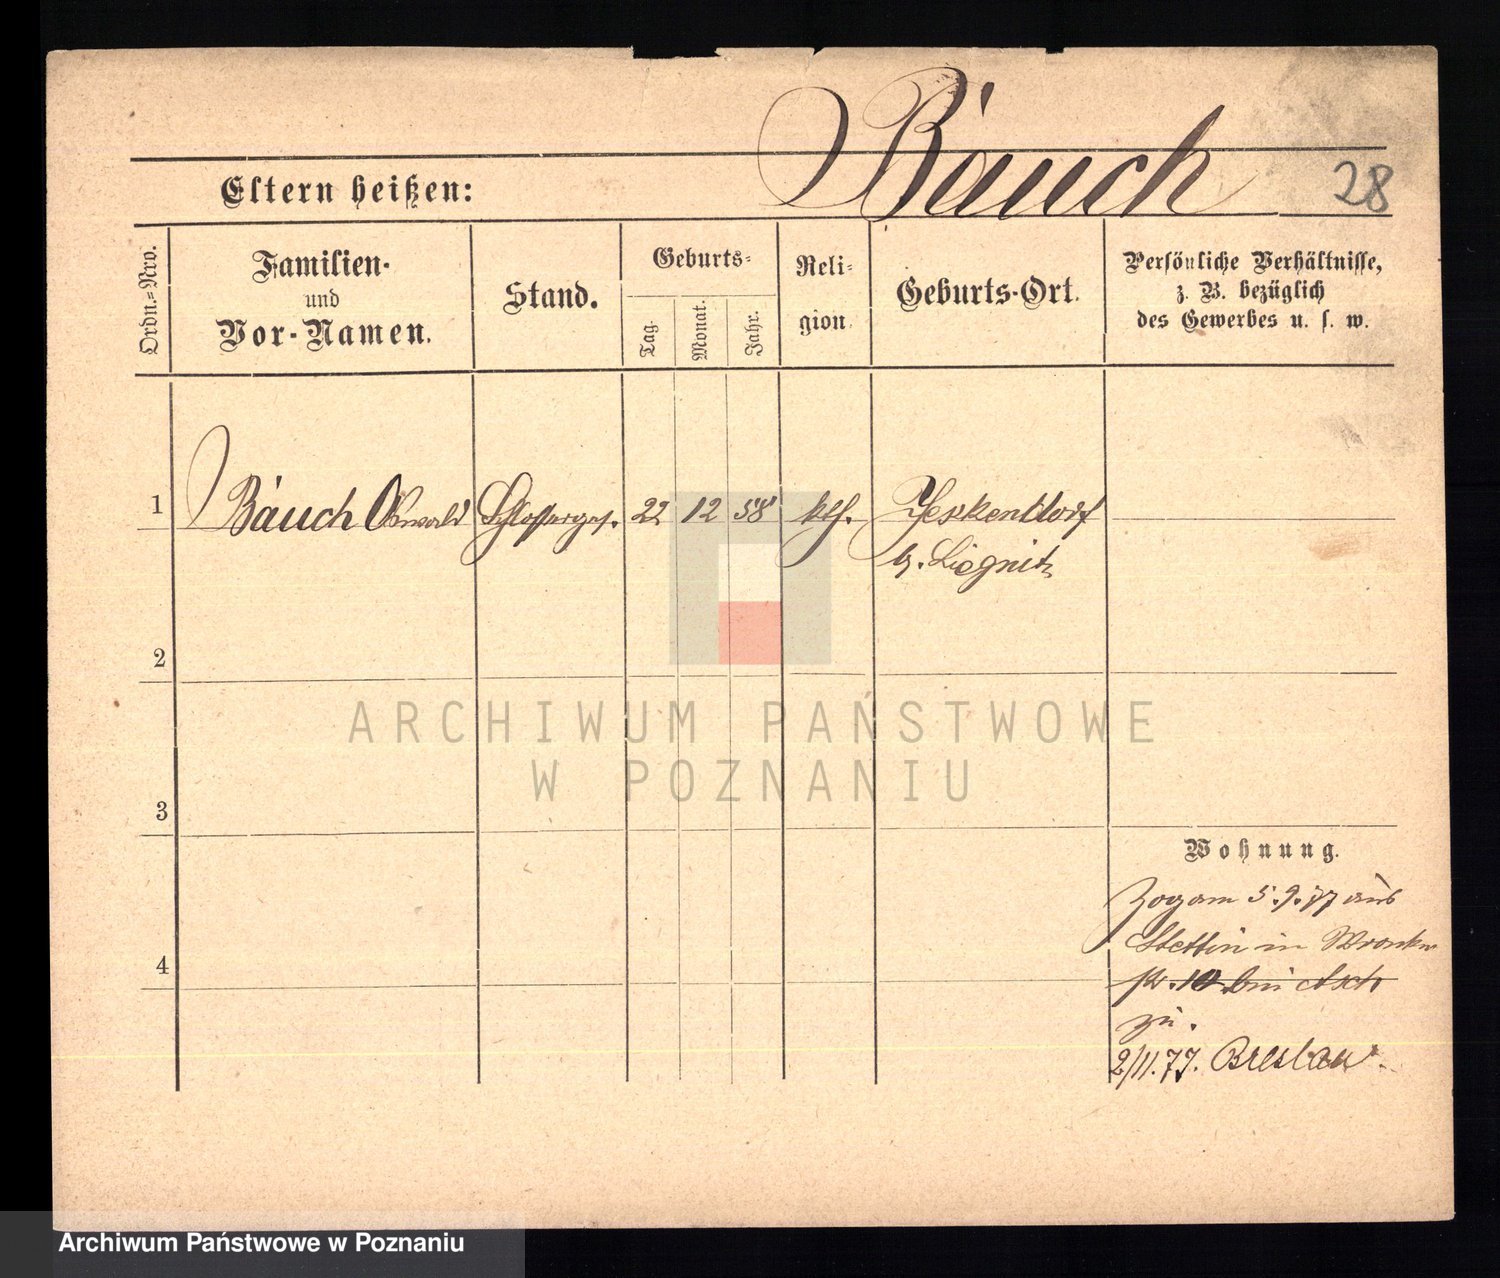 Bauch
28
Eltern heißen:
Ordn.=Nro.
Familien-
und
Vor-Namen.
Stand.
Geburts-
Tag.
Monat.
Jahr.
Reli-
gion.
Geburts-Ort.
Persönliche Verhältnisse,
z. B. bezüglich
des Gewerbes u. s. w.
1 Bauch Oswald Schlosserges. 22 12 58 kth. Jeskendorf
b. Liegnitz
2
3
4
Wohnung.
Zog am 5.9.77 aus
Stettin in Wronker
str. 10 bei Asch
zu.
2/11.77. Breslau.
ARCHIWUM PAŃSTWOWE
W POZNANIU
Archiwum Państwowe w Poznaniu